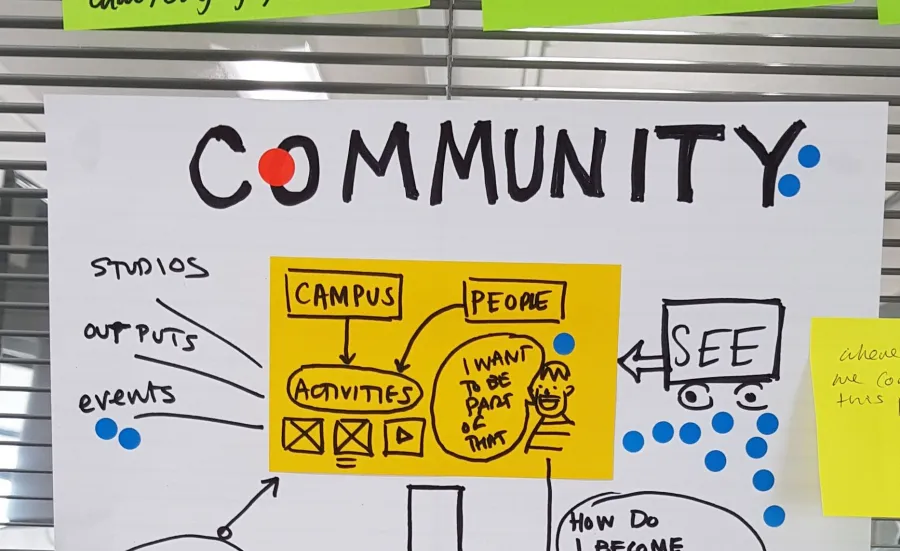 COMMUNITY
STUDIOS
OUTPUTS
events
CAMPUS
PEOPLE
ACTIVITIES
I WANT
TO BE
PART
OF
THAT
SEE
where
me
this
HOW DO
I BECOME